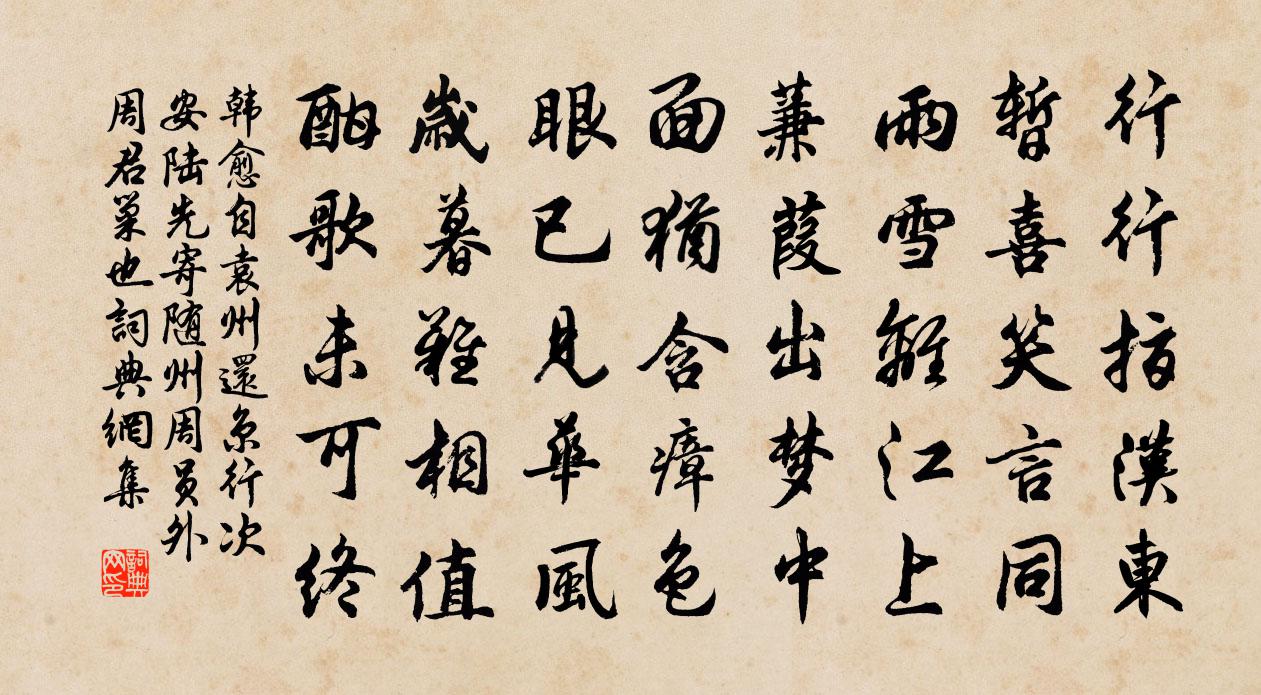 行行指漢東
暫喜笑言同
雨雪離江上
蒹葭出梦中
面猶含瘴色
眼已見華風
歲暮難相值
酣歌未可終
韩愈自袁州還京行次
安陆先寄随州周员外
周君巢也詞典網集
詞典网印